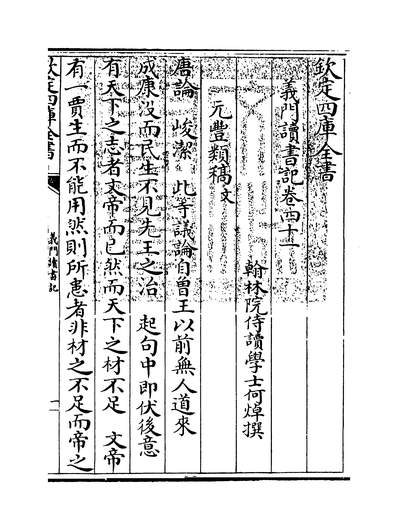 欽定四庫全書
義門讀書記卷四十一
翰林院侍讀學士何焯撰
元豐類稿文
唐論　峻潔　此等議論自曾王以前無人道來
成康沒而民生不見先王之治　起句中即伏後意
有天下之志者文帝而已然而天下之材不足　文帝
有一賈生而不能用然則所患者非材之不足而帝之
欽定四庫全書
義門讀書記